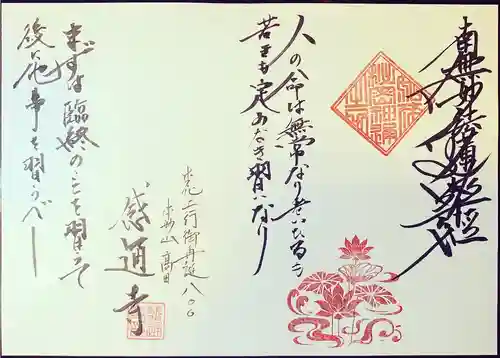 南無妙法蓮華経
人の命は無常なり 老いたるも
若きも定めなき習いなり
本化上行御降誕八〇〇
本妙山 高田
感通寺
まずは臨終のことを習うて
後に他事を習うべし